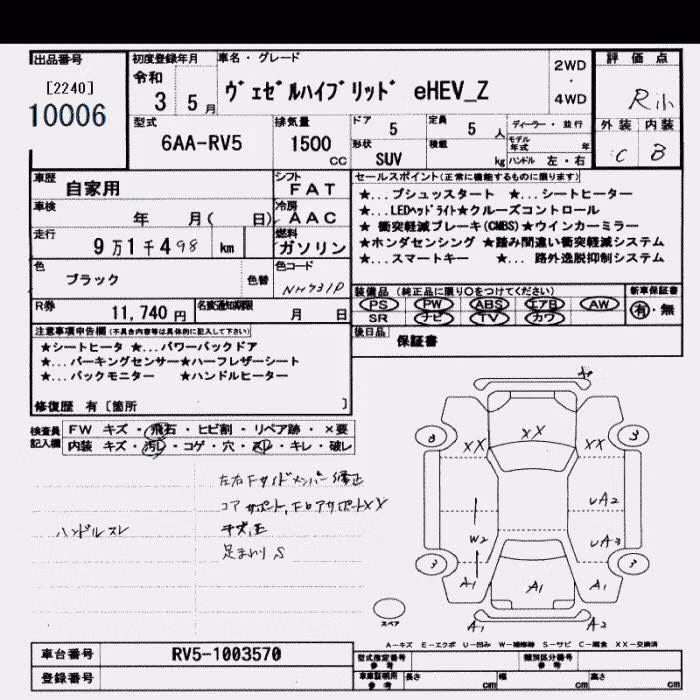 出品番号
[2240]
10006
初度登録年月
令和
3 5月
車名・グレード
ヴェゼルハイブリッド eHEV_Z
2WD
・
4WD
評価点
R小
型式
6AA-RV5
排気量
1500
cc
ドア
5
定員
5 人
ディーラー・並行
形状
SUV
積載
kg
モデル年式 年
ハンドル 左・右
外装 内装
C B
車歴
自家用
シフト
FAT
車検
年 月( 日)
冷房
AAC
走行
9万1千498 km
燃料
ガソリン
色
ブラック
色替
色コード
NH731P
R券
11,740 円
名変通知期限
月 日
セールスポイント(正常に機能するものに限ります)
★...プシュッスタート ★...シートヒーター
★...LEDヘッドライト★クルーズコントロール
★ 衝突軽減ブレーキ(CMBS)★ウインカーミラー
★ホンダセンシング ★踏み間違い衝突軽減システム
★...スマートキー ★... 路外逸脱抑制システム
装備品(純正品に限り○をつけてください)
PS PW ABS エアB AW
SR ナビ TV カワ
新車保証書
有・無
後日品
保証書
注意事項申告欄(不具合内容等は具体的に記入して下さい)
★シートヒータ ★...パワーバックドア
★...パーキングセンサー★ハーフレザーシート
★...バックモニター ★ハンドルヒーター
修復歴 有[箇所 ]
検査員
記入欄
FW キズ・飛石・ヒビ割・リペア跡・×要
内装 キズ・汚レ・コゲ・穴・スレ・キレ・破レ
左右Fサイドメンバー修正
コアサポート,FロアサポートXX
ハンドルスレ
足まわりS
XX
XX
XX
3
3
3
UA2
W2
UA3
A1
A1
A1
A2
スペア
A-キズ E-エクボ U-凹み W-補修跡 S-サビ C-腐食 XX-交換済
車台番号
RV5-1003570
登録番号
型式指定番号
参考
類別区分番号
参考
車庫証明用
参考
長さ cm
幅 cm
高さ cm